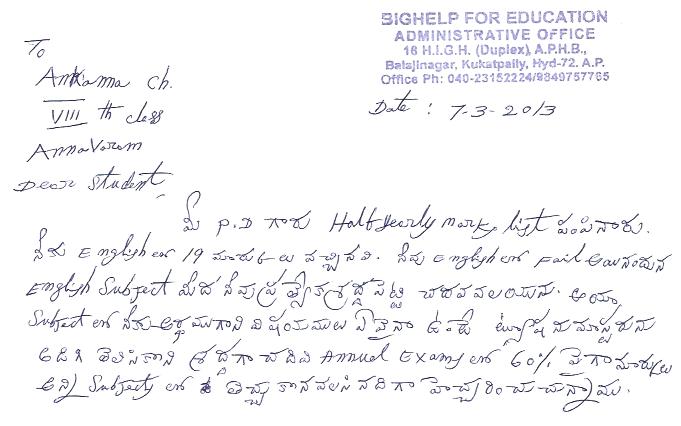 BIGHELP FOR EDUCATION
ADMINISTRATIVE OFFICE
16 H.I.G.H. (Duplex), A.P.H.B.,
Balajinagar, Kukatpally, Hyd-72. A.P.
Office Ph: 040-23152224/9849757765
Date : 7-3-2013
To
Ankamma Ch.
VIII th class
Annavaram
Dear Student,
మీ P.D గారు Half yearly marks list పంపినారు.
నీకు English లో 19 మార్కులు వచ్చినవి. నీవు English లో Fail అయినందున
English Subject మీద నీవు ప్రత్యేక శ్రద్ధ పెట్టి చదవవలయును. ఆయా
Subject లో నీకు అర్థముగాని విషయములు ఏవైనా ఉంటే ట్యూషను మాస్టరును
అడిగి తెలిసికొని శ్రద్ధగా చదివి Annual Exams లో 60% పైగా మార్కులు
అన్ని Subjects లో తెచ్చుకొనవలసినదిగా హెచ్చరించుచున్నాము.